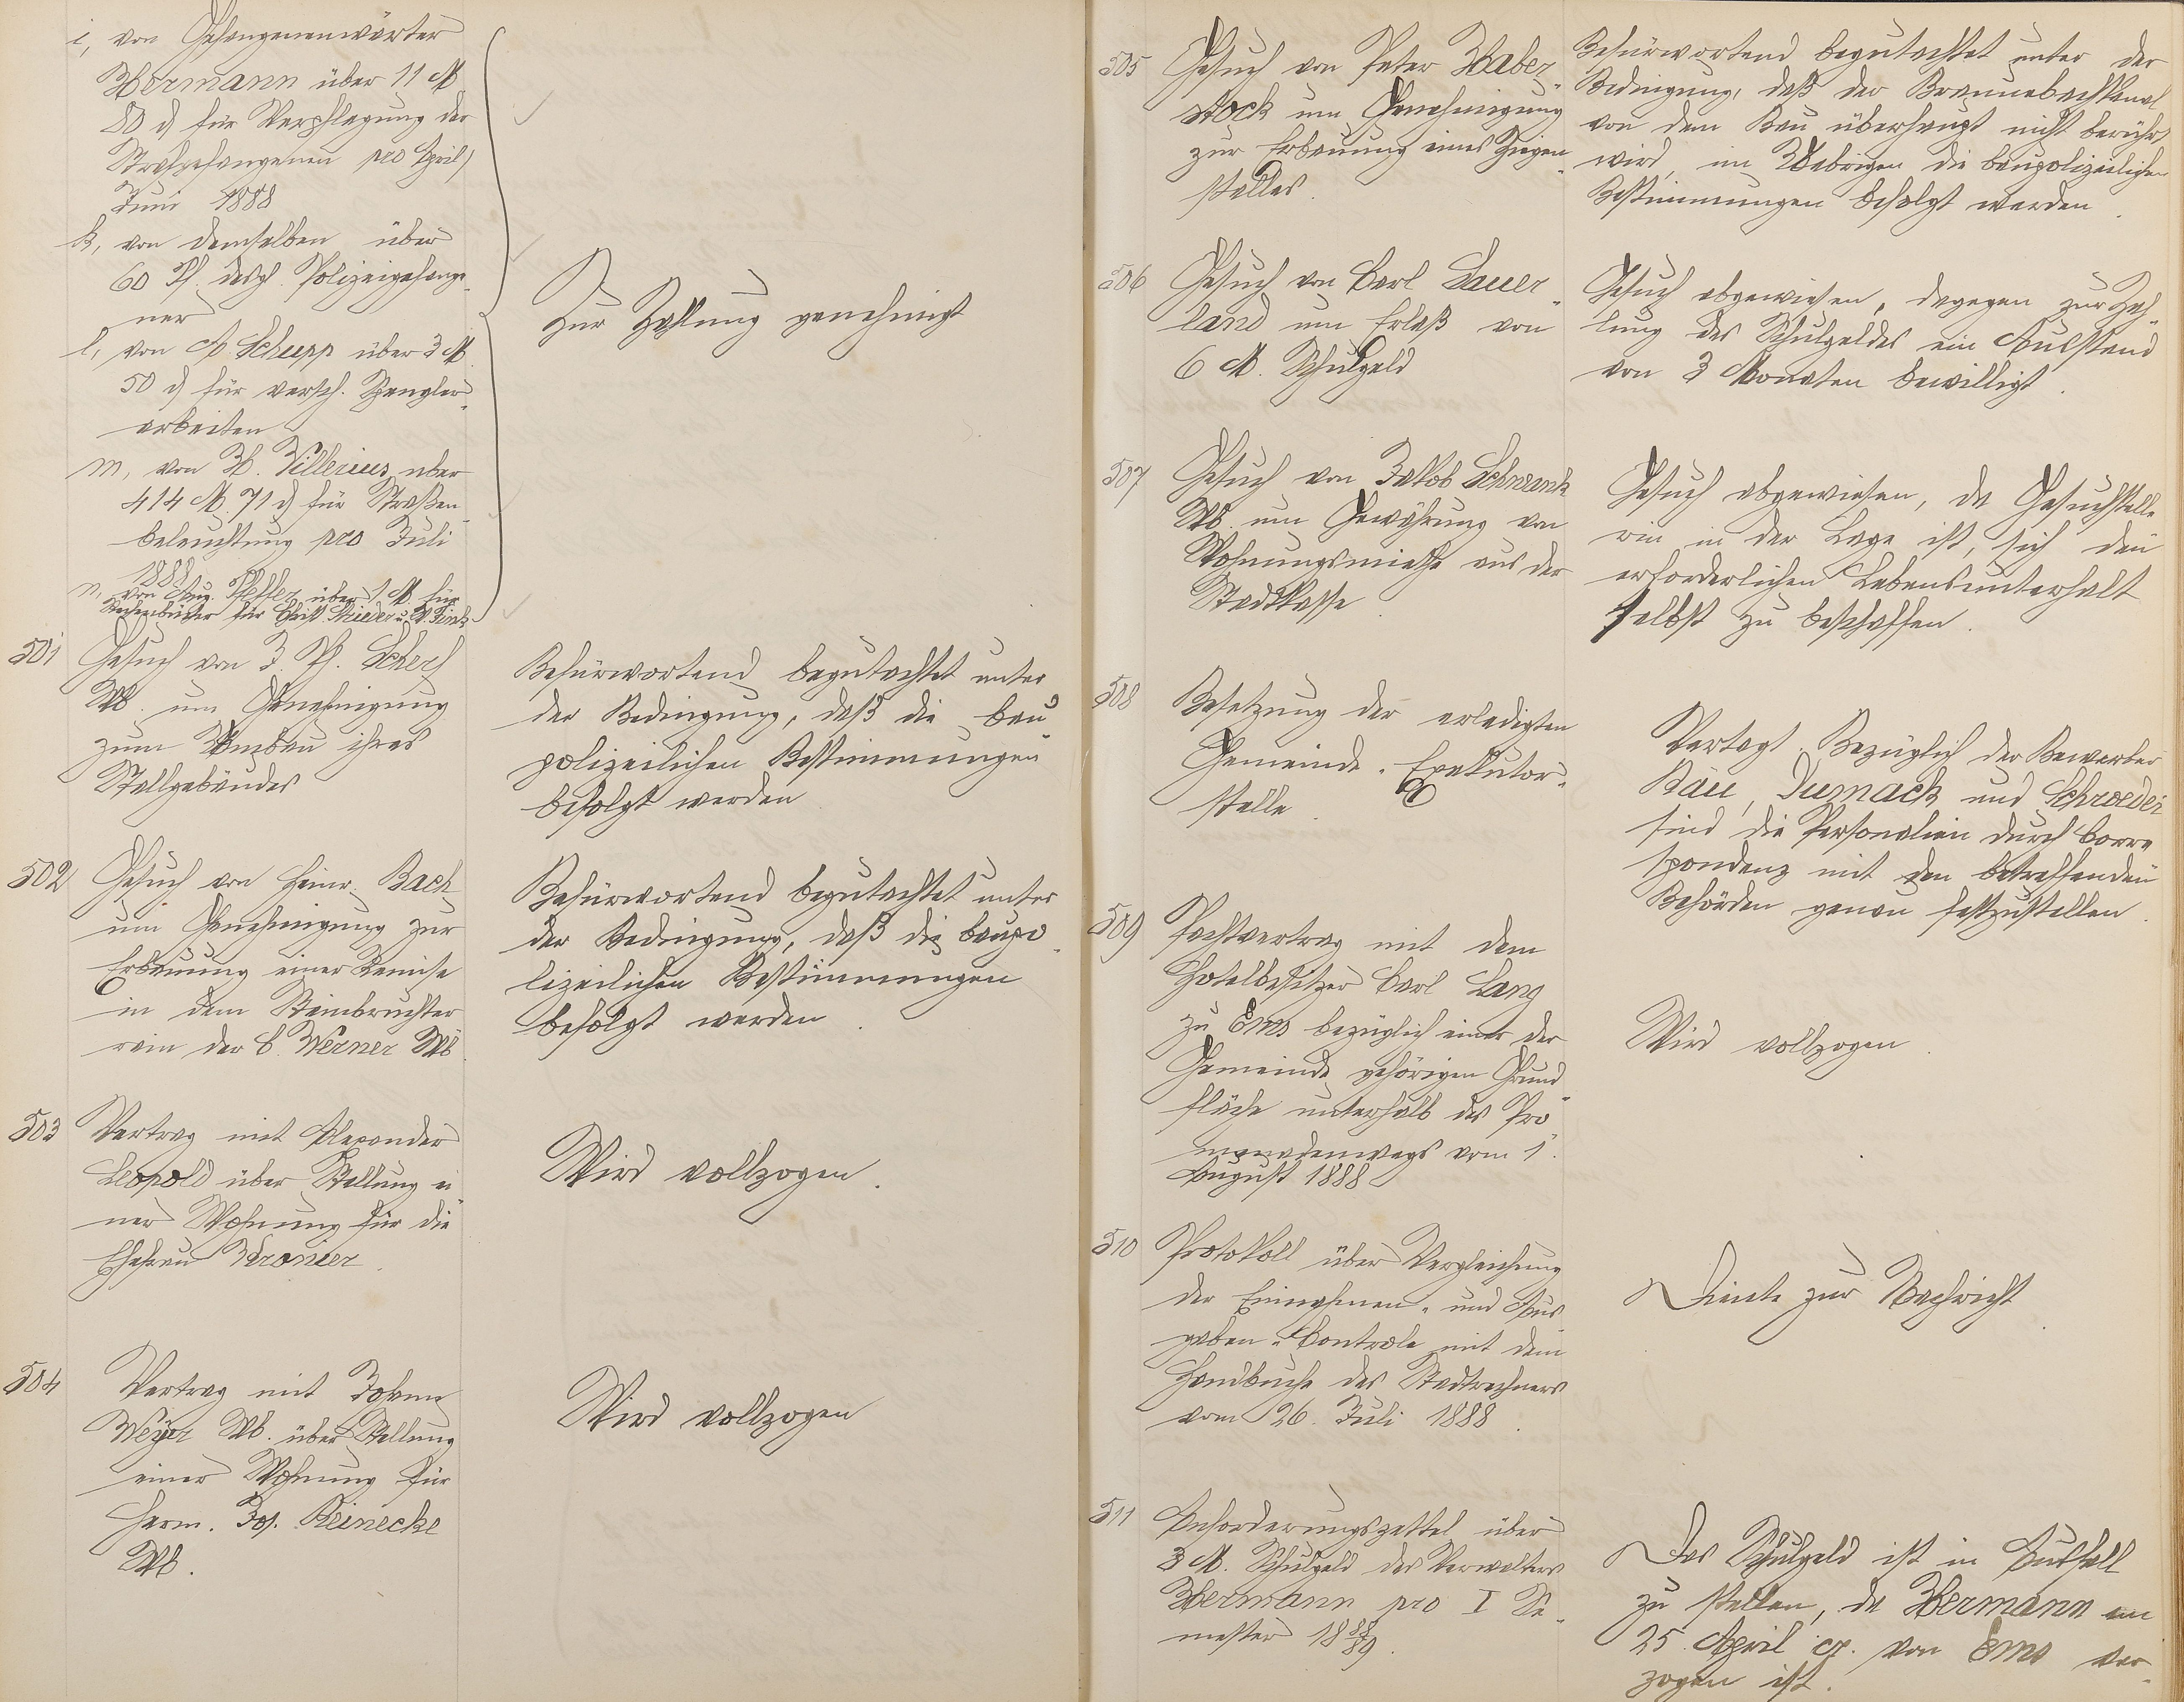 i, von Gefangenenwärter
Hermann über 11 M
80 d für Verpflegung der
Strafgefangenen pro April/
Juni 1888
k, von demselben über
60 Pf. desgl. Polizeigefange-
ner
l, von A. Schupp über 3 M.
50 d für versch. Spengler-
arbeiten
m, von H. Villerius über
414 M. 71 d für Straßen-
beleuchtung pro Juli
1888
n, von Aug. Pfeffer über 1 M. für
für Christ. u. W. Fink
Zur Zahlung genehmigt
501
Gesuch von J. Ph. Scherf
Wb. um Genehmigung
zum Umbau ihres
Stallgebäudes
Befürwortend begutachtet unter
der Bedingung, daß die bau-
polizeilichen Bestimmungen
befolgt werden
502
Gesuch von Heinr. Bach
um Genehmigung zur
Erbauung einer Remise
in dem Steinbruchter-
rain der C. Werner Wb.
Befürwortend begutachtet unter
der Bedingung, daß die baupo-
lizeilichen Bestimmungen
befolgt werden.
503
Vertrag mit Alexander
Leopold über Stellung ei-
ner Wohnung für die
Ehefrau Kronier.
Wird vollzogen.
504
Vertrag mit Johann
Weyer Wb. über Stellung
einer Wohnung für
Herm. Jos. Reinecke
Wb.
Wird vollzogen
505
Gesuch von Peter Haber-
stock um Genehmigung
zur Erbauung eines Ziegen-
stalles.
Befürwortend begutachtet unter der
Bedingung, daß der Braunebachkanal
von dem Bau überhaupt nicht berührt
wird, im Uebrigen die baupolizeilichen
Bestimmungen befolgt werden.
506
Gesuch von Carl Sauer-
land um Erlaß von
6 M. Schulgeld
Gesuch abgewiesen, dagegen zur Zah-
lung des Schulgeldes ein Ausstand
von 3 Monaten bewilligt.
507
Gesuch von Jakob Schwank
Wb. um Gewährung von
Wohnungsmiethe aus der
Stadtkasse.
Gesuch abgewiesen, da Gesuchstelle-
rin in der Lage ist, sich den
erforderlichen Lebensunterhalt
selbst zu beschaffen.
508
Besetzung der erledigten
Gemeinde-Exekutor-
stelle.
Vertagt. Bezüglich der Bewerber
Bäu, Dumack und Schroeder
sind die Personalien durch Corre-
spondenz mit den betreffenden
Behörden genau festzustellen.
509
Pachtvertrag mit dem
Hotelbesitzer Carl Lang
zu Ems bezüglich einer der
Gemeinde gehörigen Grund-
fläche unterhalb des Pro-
menadenwegs vom 1.
August 1888
Wird vollzogen.
510
Protokoll über Vergleichung
der Einnahmen- und Aus-
gaben-Controle mit dem
Handbuche des Stadtrechners
vom 26. Juli 1888.
Diente zur Nachricht.
511
Anforderungszettel über
3 M. Schulgeld des Verwalters
Hermann pro I Se-
mester 1888/89.
Das Schulgeld ist in Ausfall
zu stellen, da Hermann am
25. April cr. von Ems ver-
zogen ist.